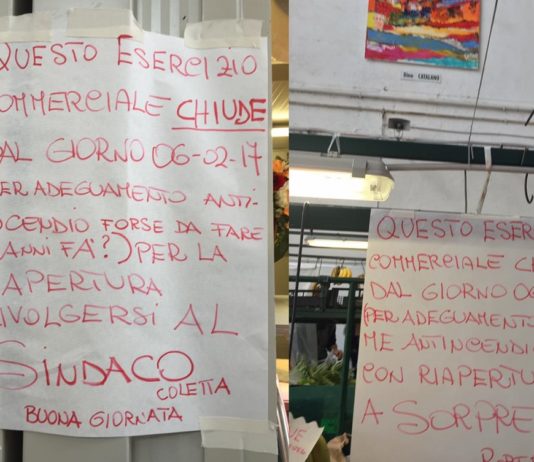 QUESTO ESERCIZIO
COMMERCIALE CHIUDE
DAL GIORNO 06-02-17
PER ADEGUAMENTO ANTI-
NCENDIO FORSE DA FARE
ANNI FÀ?) PER LA
APERTURA
IVOLGERSI AL
SINDACO
COLETTA
BUONA GIORNATA
Rino CATALANO
QUESTO ESER
COMMERCIALE C
DAL GIORNO 0
(PER ADEGUAMENTO
ME ANTINCENDI
CON RIAPERTU
A SORPRE